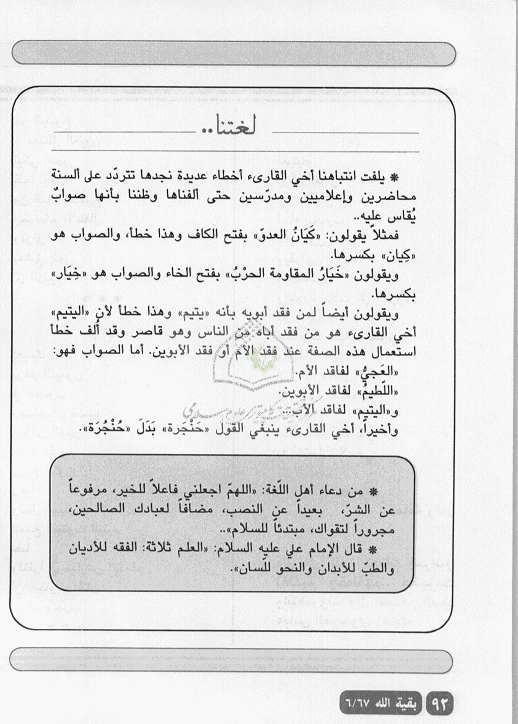 لغتنا..
* يلفت انتباهنا أخي القارىء أخطاء عديدة نجدها تتردّد على ألسنة
محاضرين وإعلاميين ومدرّسين حتى ألفناها وظننا بأنها صوابٌ
يُقاس عليه..
فمثلاً يقولون: «كَيَانُ العدوّ» بفتح الكاف وهذا خطأ، والصواب هو
«كِيان» بكسرها.
ويقولون «خَيَارُ المقاومة الحرْبُ» بفتح الخاء والصواب هو «خِيَار»
بكسرها.
ويقولون أيضاً لمن فقد أبويه بأنه «يتيم» وهذا خطأ لأن «اليتيم»
أخي القارىء هو من فقد أباه من الناس وهو قاصر وقد أُلف خطأ
استعمال هذه الصفة عند فقد الأم أو فقد الأبوين. أما الصواب فهو:
«العَجيُّ» لفاقد الأم.
«اللّطيمُ» لفاقد الأبوين.
و«اليتيم» لفاقد الأب...
وأخيراً، أخي القارىء ينبغي القول «حَنْجَرة» بَدَلَ «حُنْجُرَة».
* من دعاء أهل اللّغة: «اللهمّ اجعلني فاعلاً للخير، مرفوعاً
عن الشرّ، بعيداً عن النصب، مضافاً لعبادك الصالحين،
مجروراً لتقواك، مبتدئاً للسلام»..
* قال الإمام علي عليه السلام: «العلم ثلاثة: الفقه للأديان
والطبّ للأبدان والنحو للّسان».
٩٢ بقية الله ٦/٦٧